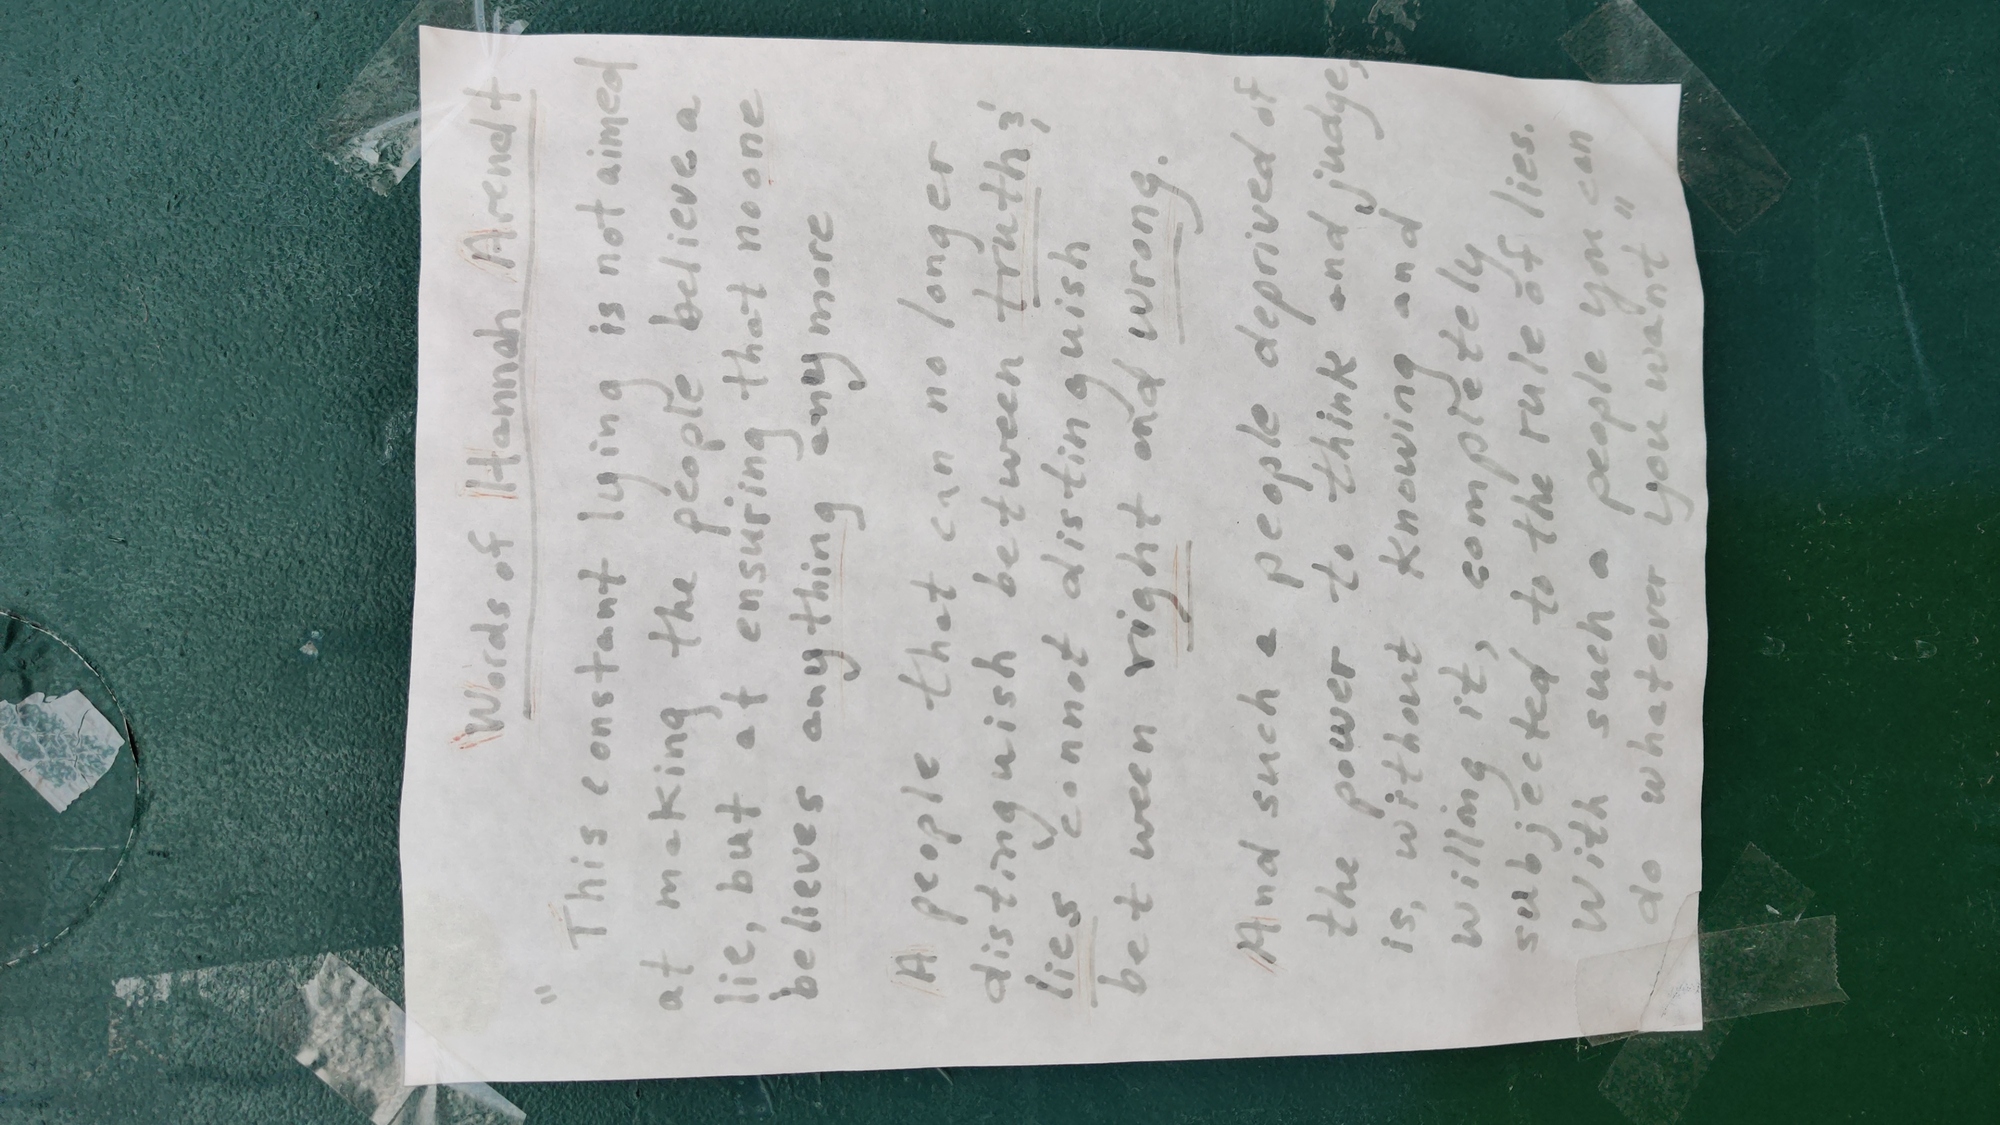 Words of Hannah Arendt
" This constant lying is not aimed
at making the people believe a
lie, but at ensuring that no one
believes anything anymore
A people that can no longer
distinguish between truth &
lies cannot distinguish
between right and wrong.
And such a people deprived of
the power to think and judge,
is, without knowing and
willing it, completely
subjected to the rule of lies.
With such a people you can
do whatever you want "